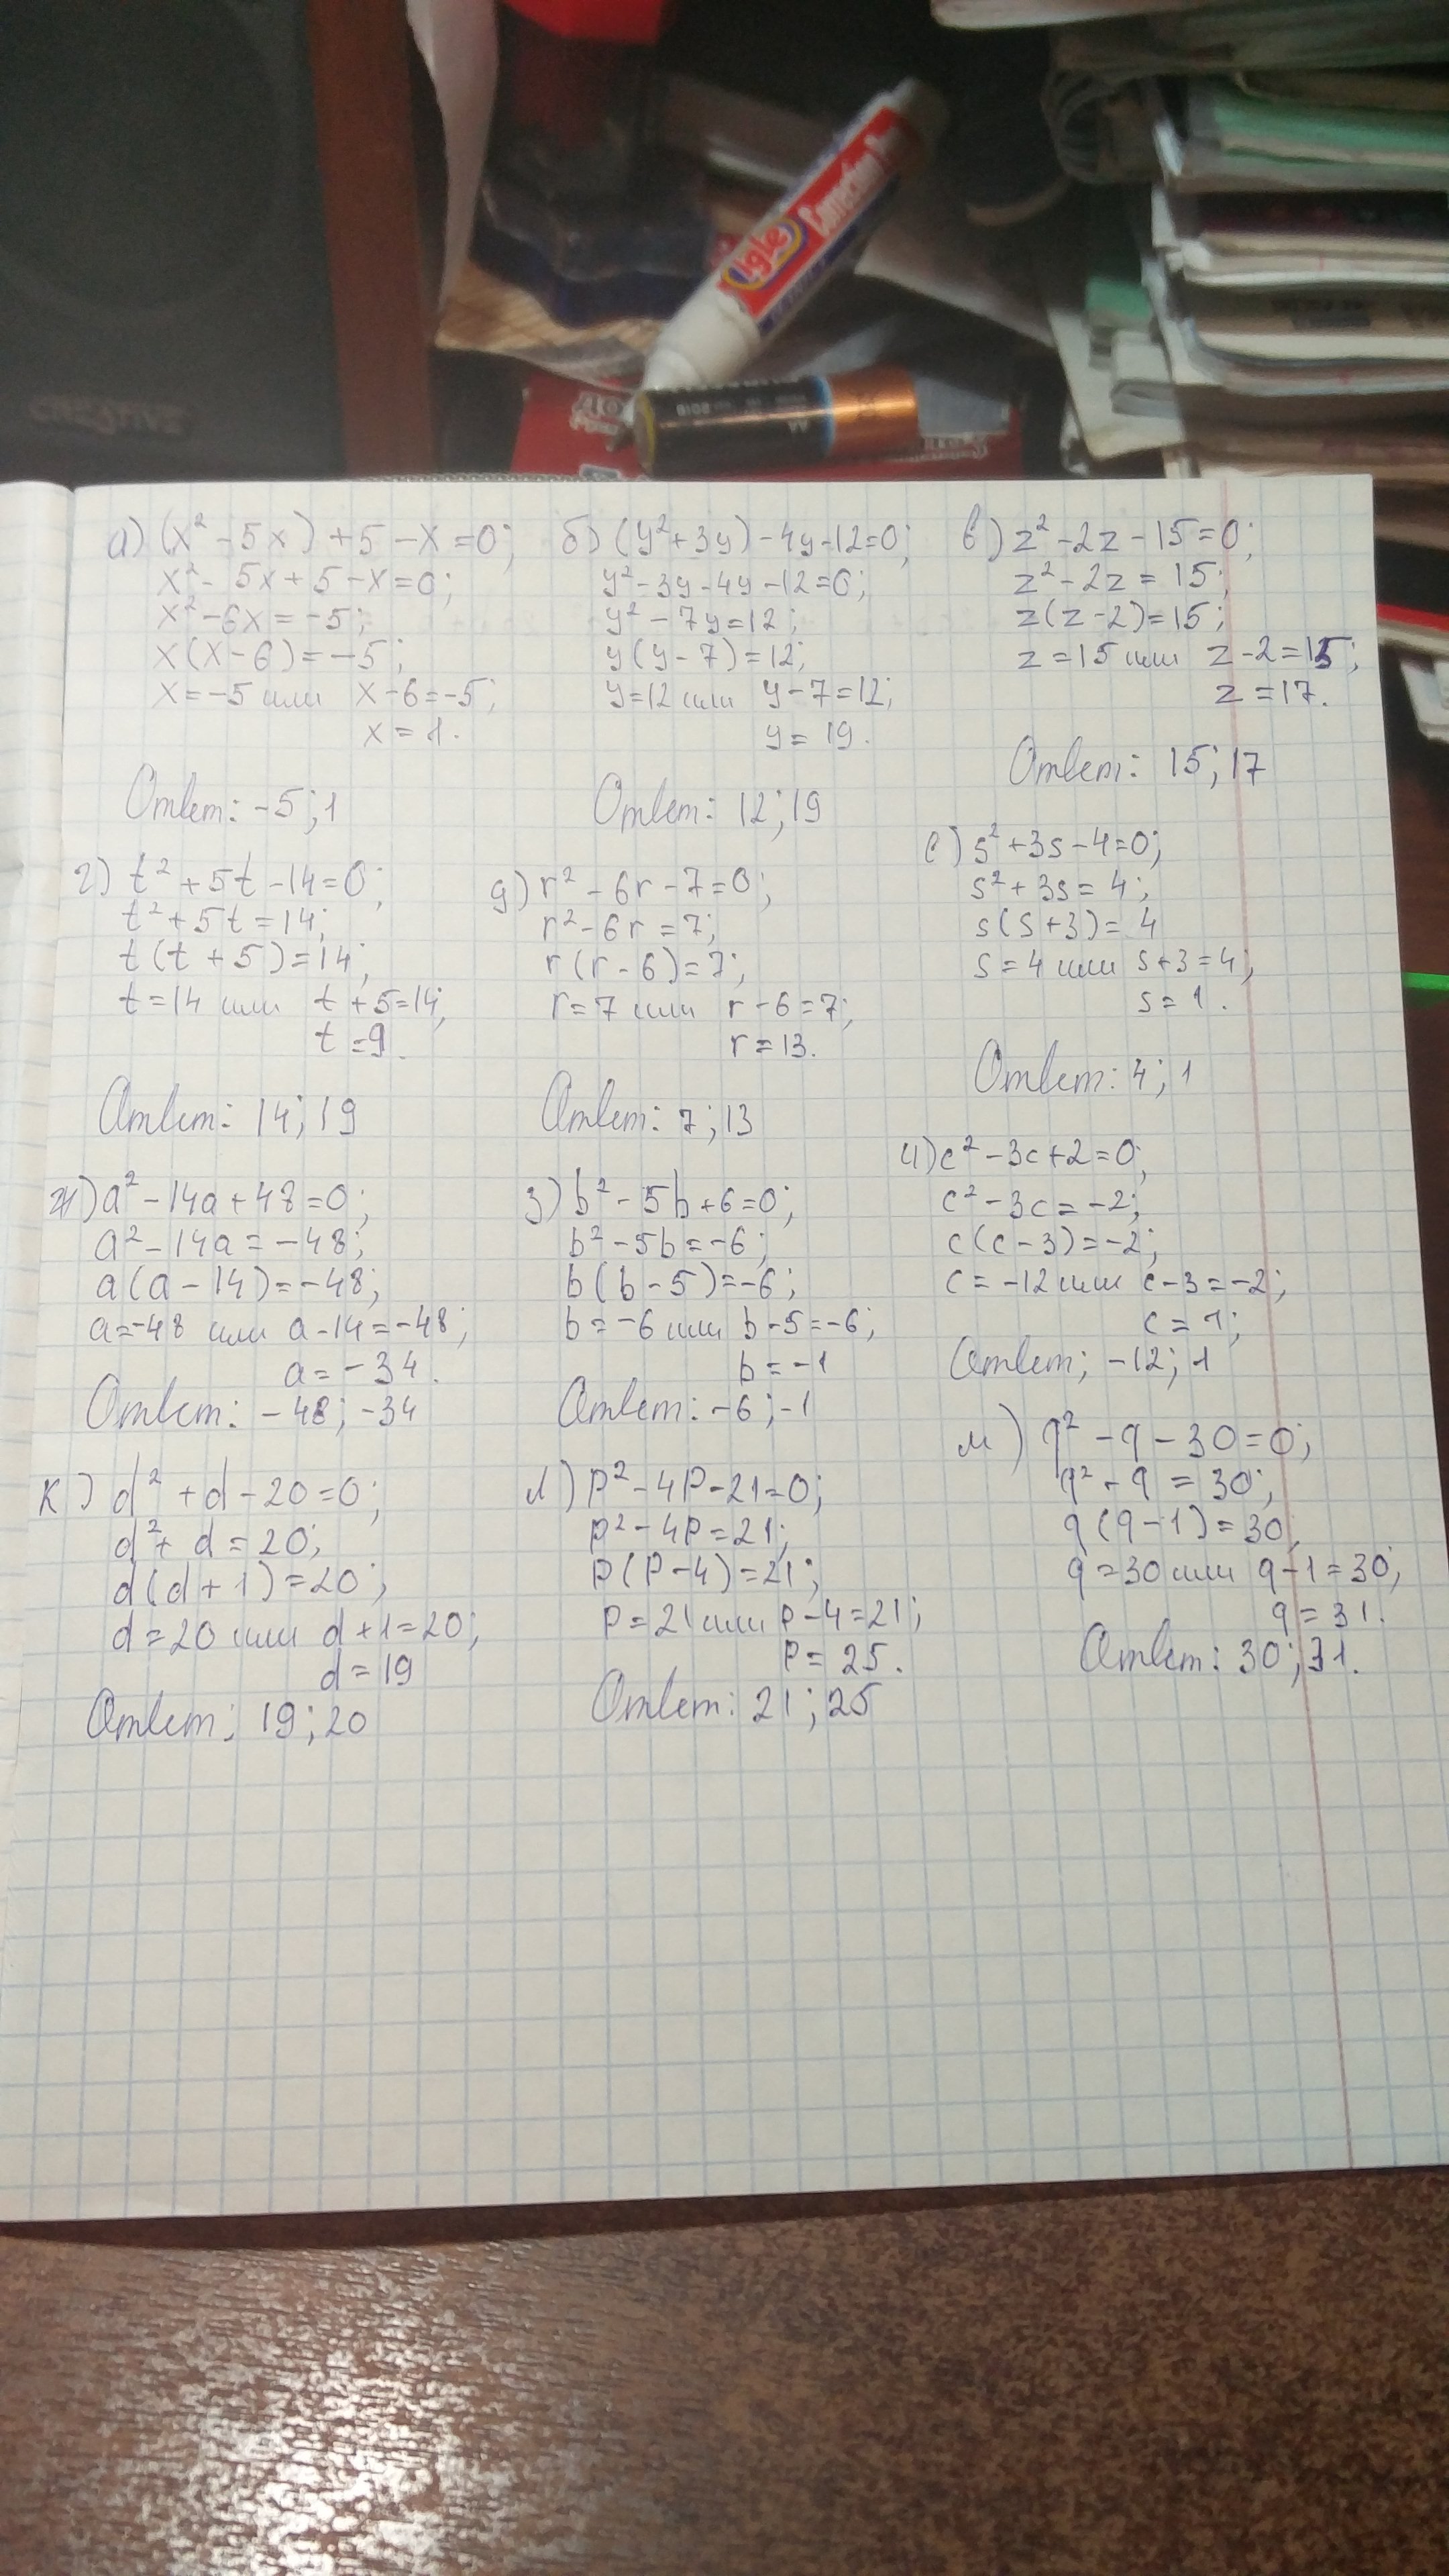 CREATIVE
Igle Correction Pen
AA
а) (x² - 5x) + 5 - x = 0;
x² - 5x + 5 - x = 0;
x² - 6x = -5;
x(x - 6) = -5;
x = -5 или x - 6 = -5;
x = 1.
Ответ: -5; 1
б) (y² + 3y) - 4y - 12 = 0;
y² - 3y - 4y - 12 = 0;
y² - 7y = 12;
y(y - 7) = 12;
y = 12 или y - 7 = 12;
y = 19.
Ответ: 12; 19
в) z² - 2z - 15 = 0;
z² - 2z = 15;
z(z - 2) = 15;
z = 15 или z - 2 = 15;
z = 17.
Ответ: 15; 17
г) t² + 5t - 14 = 0;
t² + 5t = 14;
t(t + 5) = 14;
t = 14 или t + 5 = 14;
t = 9.
Ответ: 14; 19
д) r² - 6r - 7 = 0;
r² - 6r = 7;
r(r - 6) = 7;
r = 7 или r - 6 = 7;
r = 13.
Ответ: 7; 13
е) s² + 3s - 4 = 0;
s² + 3s = 4;
s(s + 3) = 4
s = 4 или s + 3 = 4;
s = 1.
Ответ: 4; 1
ж) a² - 14a + 48 = 0;
a² - 14a = -48;
a(a - 14) = -48;
a = -48 или a - 14 = -48;
a = -34.
Ответ: -48; -34
з) b² - 5b + 6 = 0;
b² - 5b = -6;
b(b - 5) = -6;
b = -6 или b - 5 = -6;
b = -1
Ответ: -6; -1
и) c² - 3c + 2 = 0;
c² - 3c = -2;
c(c - 3) = -2;
c = -12 или c - 3 = -2;
c = 1;
Ответ; -12; 1
к) d² + d - 20 = 0;
d² + d = 20;
d(d + 1) = 20;
d = 20 или d + 1 = 20;
d = 19
Ответ: 19; 20
л) p² - 4p - 21 = 0;
p² - 4p = 21;
p(p - 4) = 21;
p = 21 или p - 4 = 21;
p = 25.
Ответ: 21; 25
м) q² - q - 30 = 0;
q² - q = 30;
q(q - 1) = 30;
q = 30 или q - 1 = 30;
q = 31.
Ответ: 30; 31.